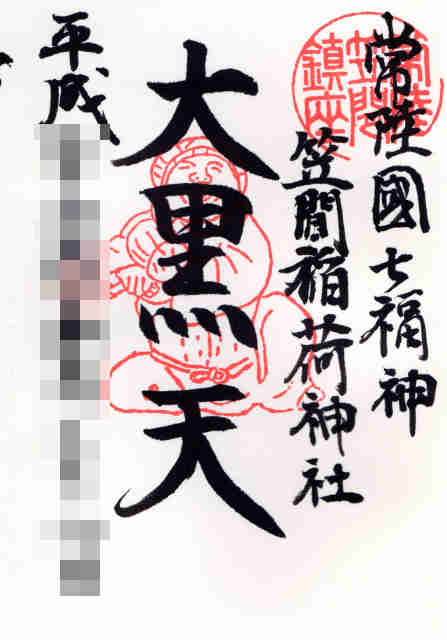 常陸國七福神
笠間稲荷神社
大黒天
平成